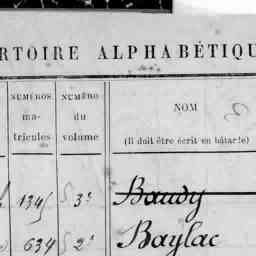 RTOIRE ALPHABÉTIQU
NUMÉROS
ma-
tricules
NUMÉRO
du
volume
NOM
(Il doit être écrit en bâtarde)
1345 3e Baudy
634 2e Baylac